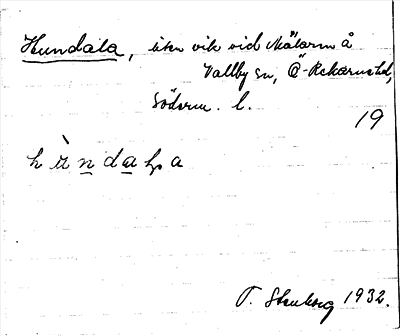 Hundala, liten vik vid Mälaren å
Vallby sn, Ö-Rekarne hd,
Söderm. l.
19
T. Stenberg 1932.